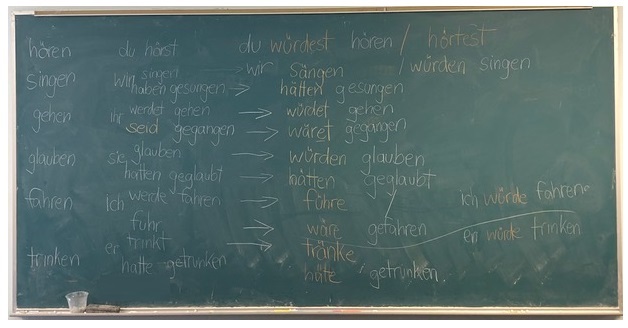 hören du hörst du würdest hören / hörtest
singen wir singen → wir sängen / würden singen
haben gesungen → hätten gesungen
gehen ihr werdet gehen → würdet gehen
seid gegangen → wäret gegangen
glauben sie glauben → würden glauben
hatten geglaubt → hätten geglaubt
fahren ich werde fahren → führe ich würde fahren
fuhr → wäre gefahren
trinken er trinkt → tränke er würde trinken
hatte getrunken hätte getrunken.